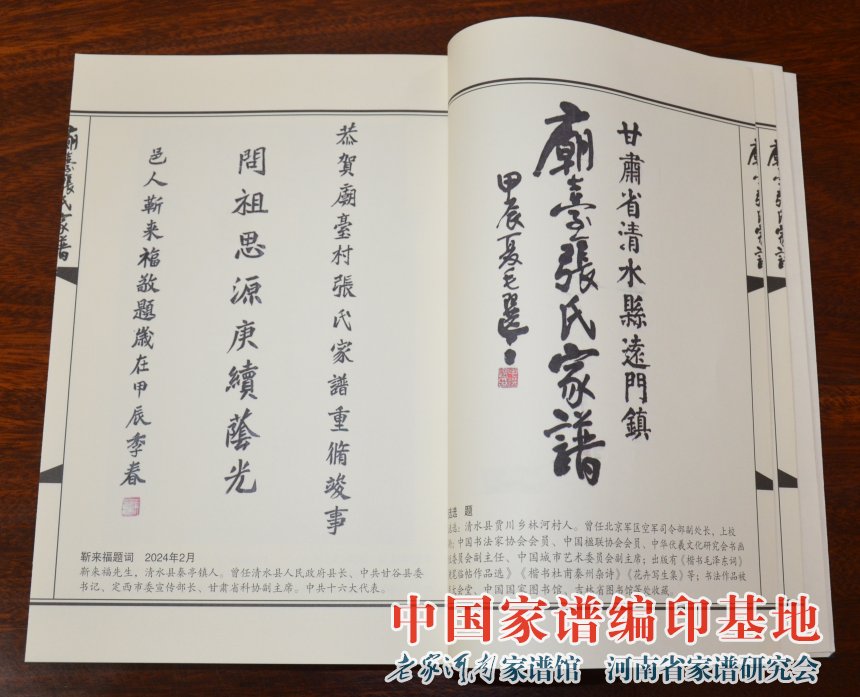 恭賀廟臺村張氏家譜重脩竣事
問祖思源庚續蔭光
邑人靳来福敬題歲在甲辰季春
靳来福题词 2024年2月
靳来福先生，清水县秦亭镇人。曾任清水县人民政府县长、中共甘谷县委
书记、定西市委宣传部长、甘肃省科协副主席。中共十六大代表。
甘肅省清水縣遠門鎮
廟臺張氏家譜
甲辰夏毛選
选 题
选：清水县贾川乡林河村人。曾任北京军区空军司令部副处长，上校
；中国书法家协会会员、中国楹联协会会员、中华伏羲文化研究会书画
委员会副主任、中国城市艺术委员会副主席；出版有《楷书毛泽东词》
笔临帖作品选》《楷书杜甫秦州杂诗》《花卉写生集》等；书法作品被
会堂、中国国家图书馆、吉林省图书馆等处收藏
廟臺張氏家譜
廟臺張氏家譜
廟臺張氏家譜
中国家谱编印基地
老家河南家谱馆 河南省家谱研究会